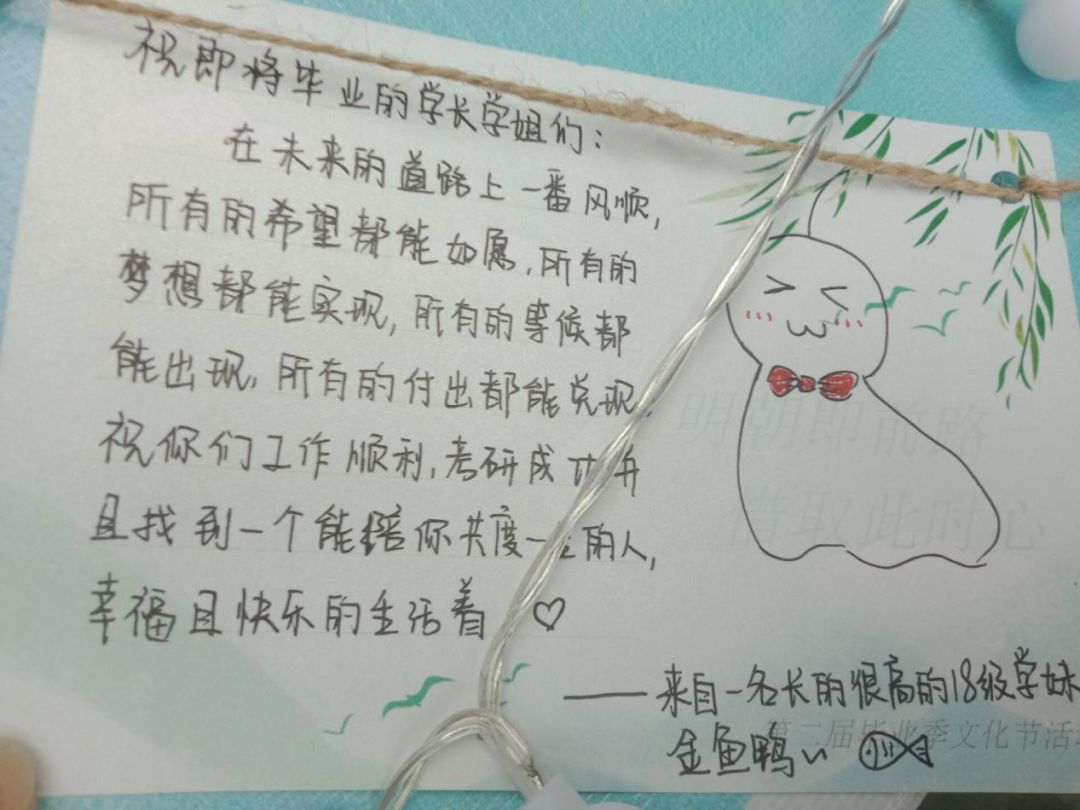 祝即将毕业的学长学姐们：
在未来的道路上一番风顺，
所有的希望都能如愿，所有的
梦想都能实现，所有的等候都
能出现，所有的付出都能兑现，
祝你们工作顺利，考研成功并
且找到一个能陪你共度一生的人，
幸福且快乐的生活着 ♡
明朝即前路
借取此时心
——来自一名长的很高的18级学妹
金鱼鸭
第二届毕业季文化节活